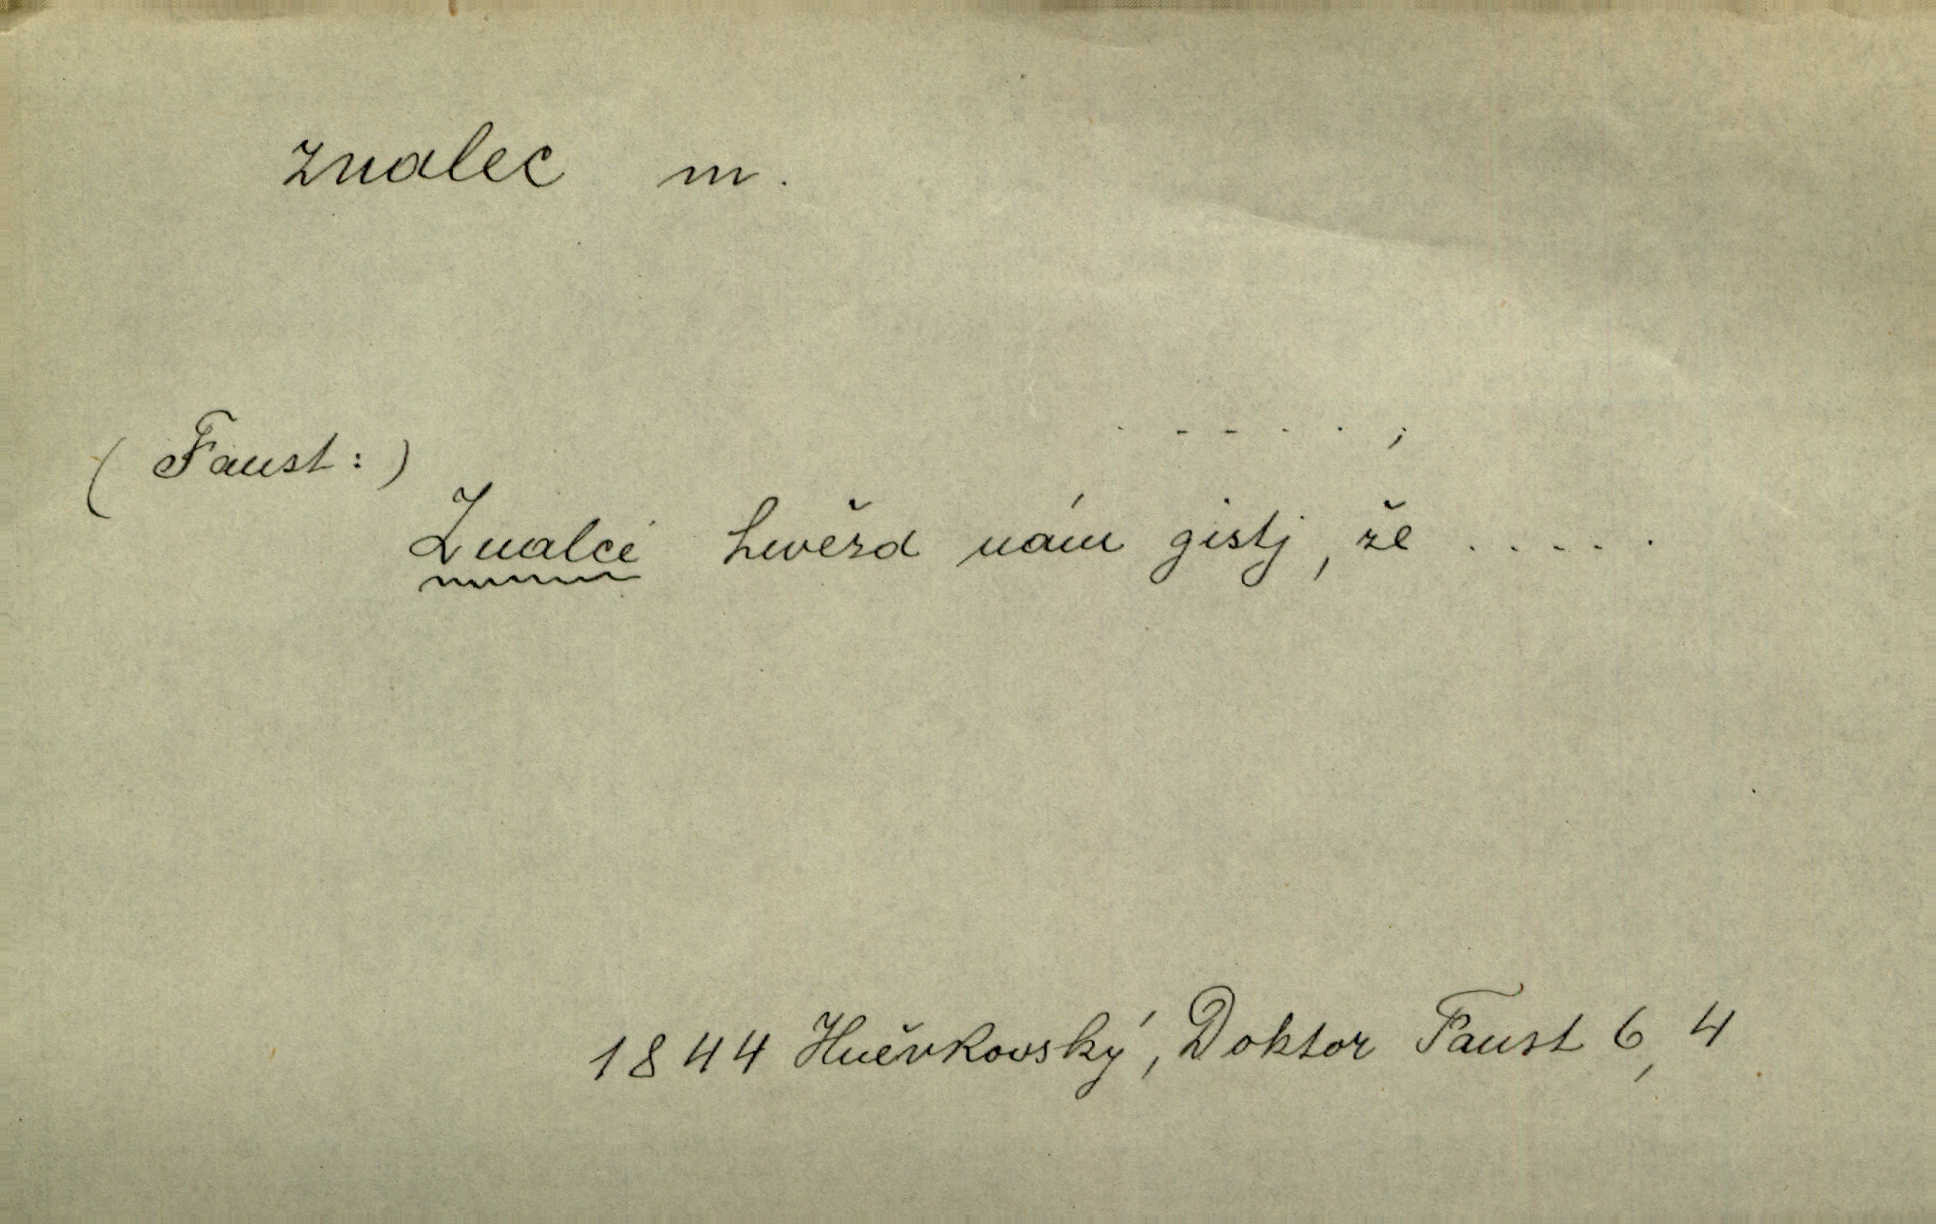 znalec m.
. - - . . ;
(Faust:)
Znalci hwězd nám gistj, že . . . . .
1844 Hněvkovský, Doktor Faust 6, 4